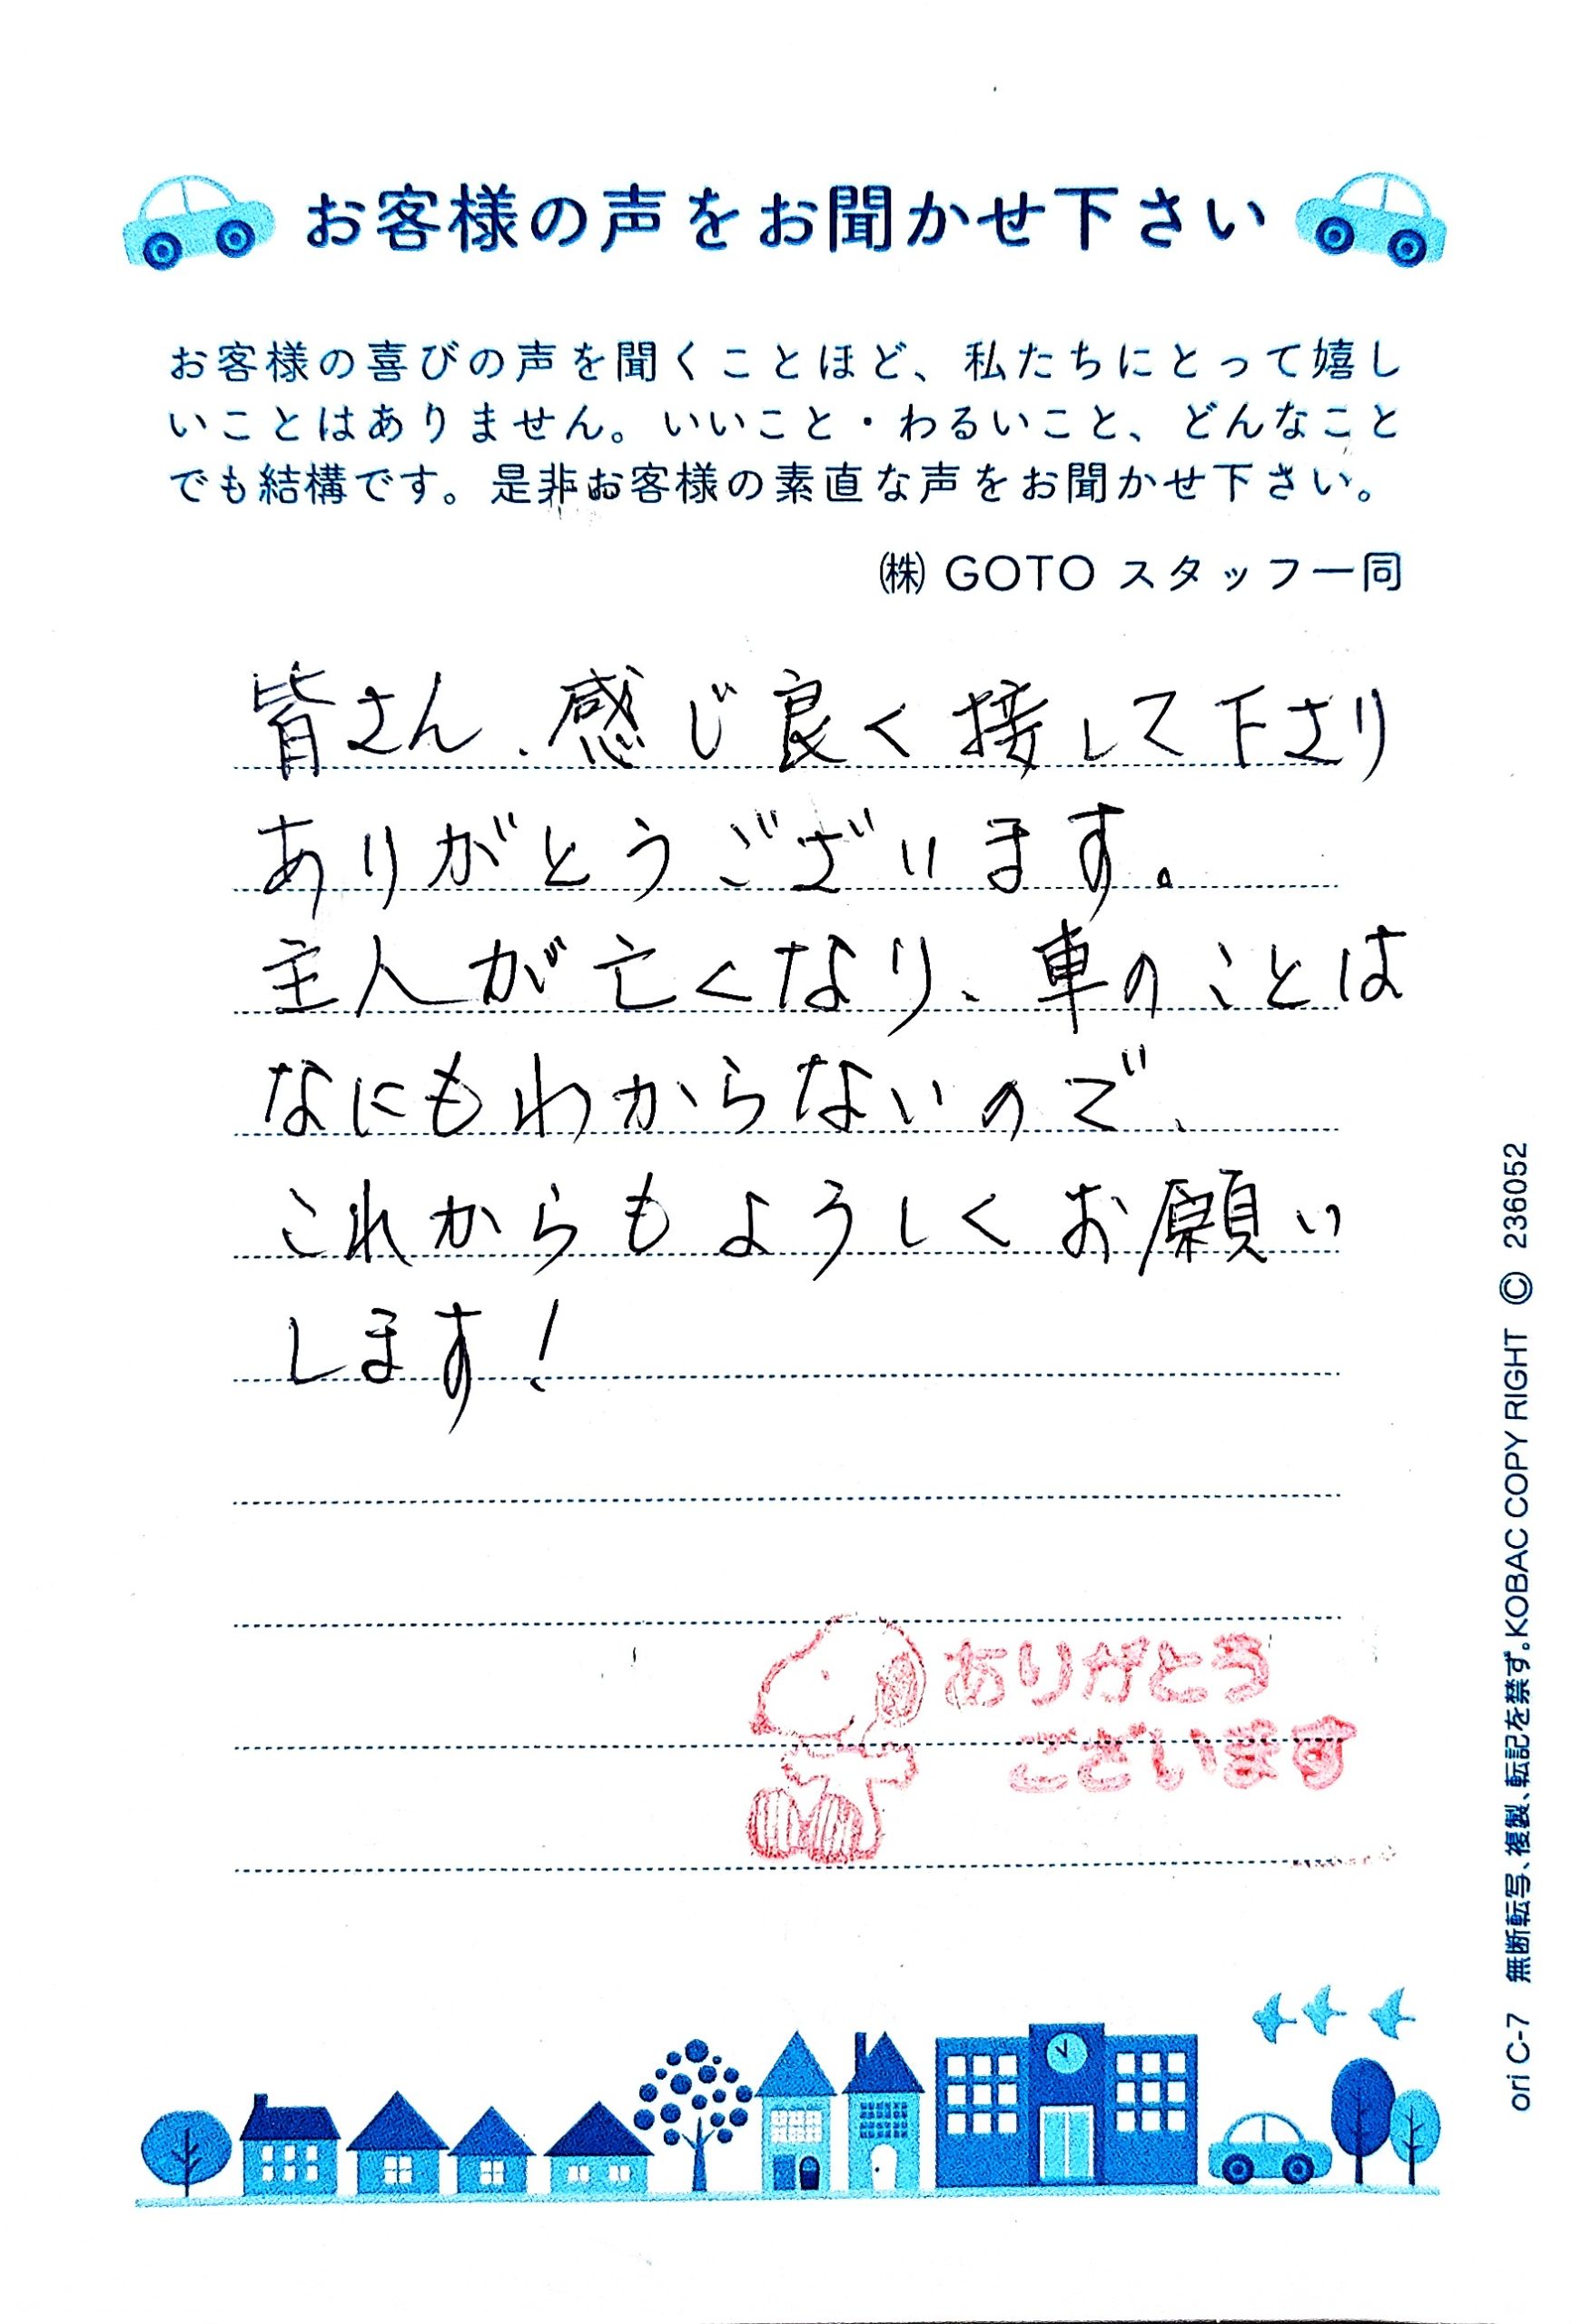 お客様の声をお聞かせ下さい
お客様の喜びの声を聞くことほど、私たちにとって嬉し
いことはありません。いいこと・わるいこと、どんなこと
でも結構です。是非お客様の素直な声をお聞かせ下さい。
㈱ GOTO スタッフ一同
皆さん、感じ良く接して下さり
ありがとうございます。
主人が亡くなり、車のことは
なにもわからないので、
これからもようしくお願い
します!
ありがとう
ございます
ori C-7 無断転写、複製、転記を禁ず。KOBAC COPY RIGHT © 236052